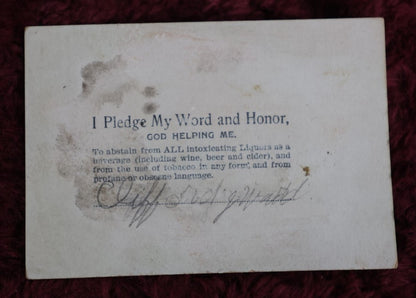 I Pledge My Word and Honor,
GOD HELPING ME.
To abstain from ALL intoxicating Liquors as a
beverage (including wine, beer and cider), and
from the use of tobacco in any form, and from
profane or obscene language.
Cliff